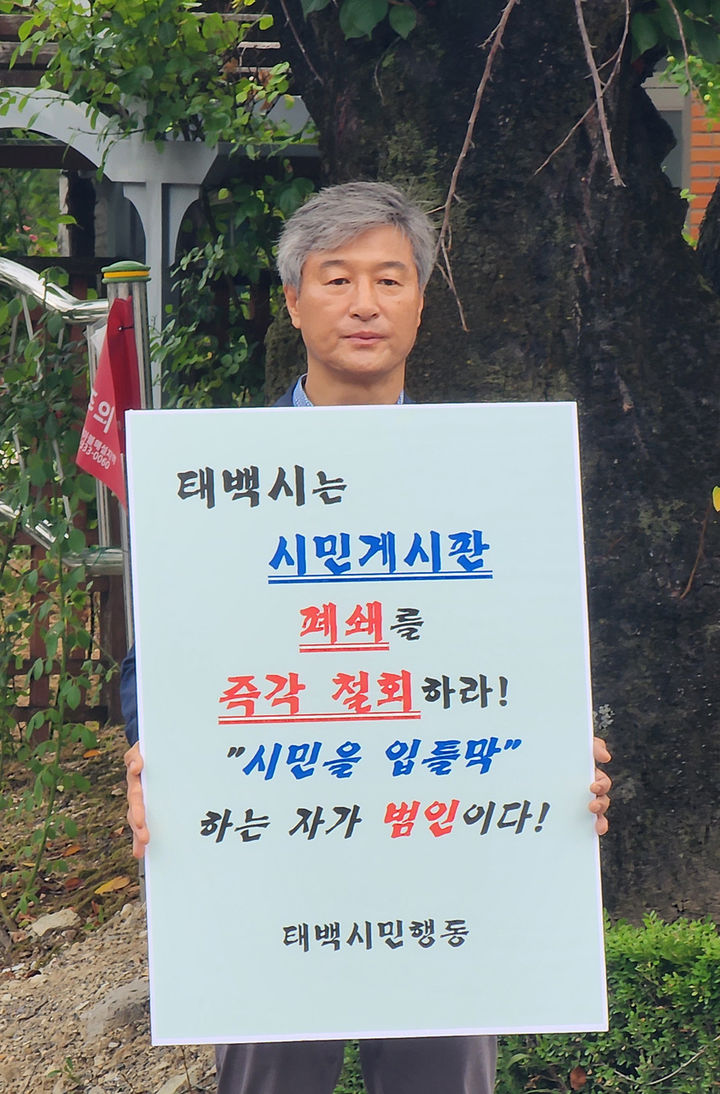 태백시는
시민게시판
폐쇄를
즉각 철회하라!
"시민을 입틀막"
하는 자가 범인이다!
태백시민행동
의
33-0060